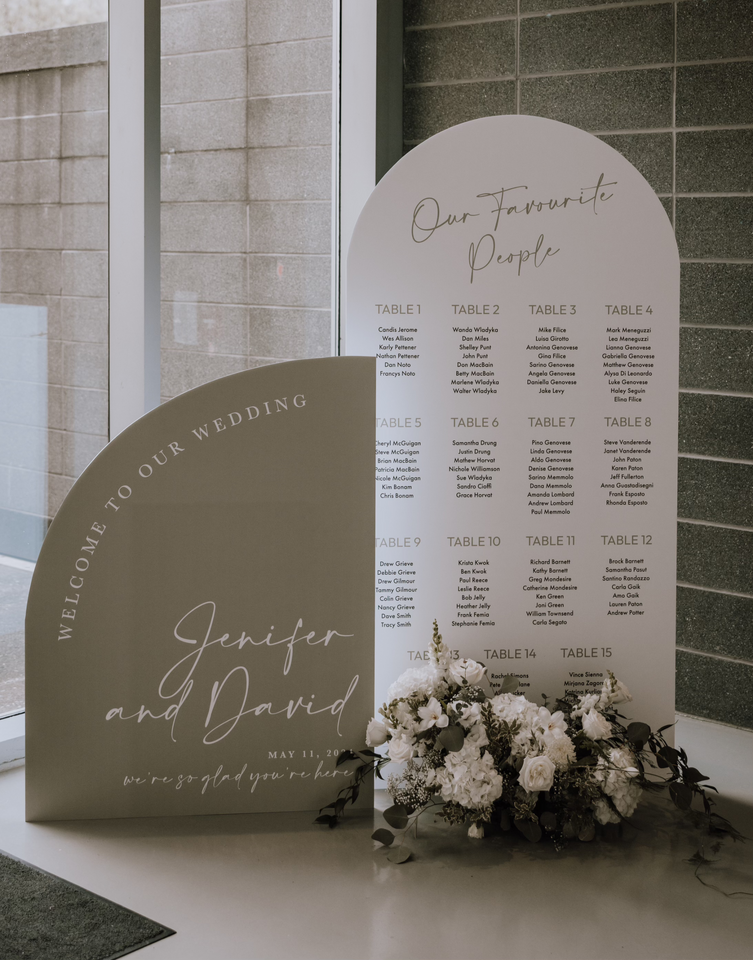 WELCOME TO OUR WEDDING
Jenifer
and David
MAY 11,
we're so glad you're here
Our Favourite
People
TABLE 1
Candis Jerome
Wes Allison
Karly Pettener
Nathan Pettener
Dan Noto
Francys Noto
TABLE 2
Wanda Wladyka
Dan Miles
Shelley Punt
John Punt
Don MacBain
Betty MacBain
Marlene Wladyka
Walter Wladyka
TABLE 3
Mike Filice
Luisa Girotto
Antonina Genovese
Gina Filice
Sarino Genovese
Angela Genovese
Daniella Genovese
Jake Levy
TABLE 4
Mark Meneguzzi
Lea Meneguzzi
Lianna Genovese
Gabriella Genovese
Matthew Genovese
Alysa Di Leonardo
Luke Genovese
Haley Seguin
Elina Filice
TABLE 5
Cheryl McGuigan
Steve McGuigan
Brian MacBain
Patricia MacBain
Nicole McGuigan
Kim Bonam
Chris Bonam
TABLE 6
Samantha Drung
Justin Drung
Mathew Horvat
Nichole Williamson
Sue Wladyka
Sandro Cioffi
Grace Horvat
TABLE 7
Pino Genovese
Linda Genovese
Aldo Genovese
Denise Genovese
Sarino Memmolo
Dana Memmolo
Amanda Lombard
Andrew Lombard
Paul Memmolo
TABLE 8
Steve Vanderende
Janet Vanderende
John Paton
Karen Paton
Jeff Fullerton
Anna Guastadisegni
Frank Esposto
Rhonda Esposto
TABLE 9
Drew Grieve
Debbie Grieve
Drew Gilmour
Tammy Gilmour
Colin Grieve
Nancy Grieve
Dave Smith
Tracy Smith
TABLE 10
Krista Kwok
Ben Kwok
Paul Reece
Leslie Reece
Bob Jelly
Heather Jelly
Frank Femia
Stephanie Femia
TABLE 11
Richard Barnett
Kathy Barnett
Greg Mondesire
Catherine Mondesire
Ken Green
Joni Green
William Townsend
Carla Segato
TABLE 12
Brock Barnett
Samantha Pasut
Santino Randazzo
Carla Gaik
Ama Gaik
Lauren Paton
Andrew Potter
TABLE 14
Rachel Simans
Pete
TABLE 15
Vince Sienna
Mirjana Zagorac
Katrina